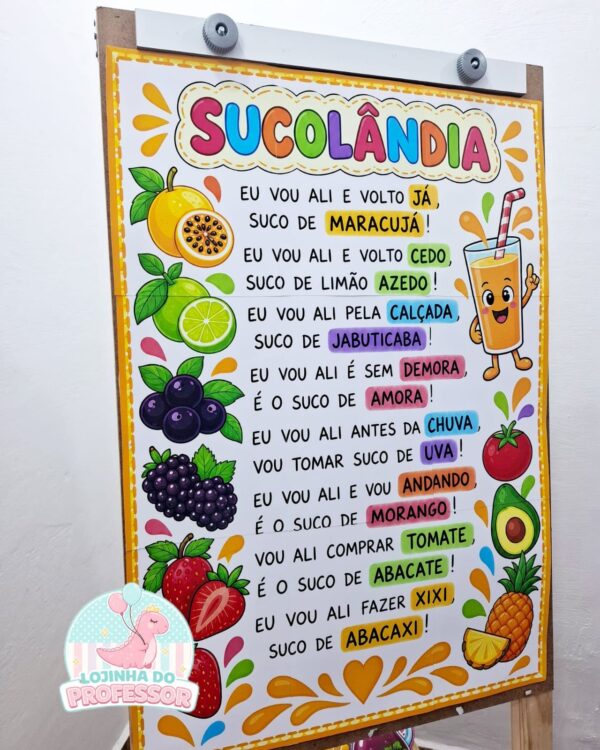 SUCOLÂNDIA
EU VOU ALI E VOLTO JÁ,
SUCO DE MARACUJÁ!
EU VOU ALI E VOLTO CEDO,
SUCO DE LIMÃO AZEDO!
EU VOU ALI PELA CALÇADA,
SUCO DE JABUTICABA!
EU VOU ALI É SEM DEMORA,
É O SUCO DE AMORA!
EU VOU ALI ANTES DA CHUVA,
VOU TOMAR SUCO DE UVA!
EU VOU ALI E VOU ANDANDO,
É O SUCO DE MORANGO!
VOU ALI COMPRAR TOMATE,
É O SUCO DE ABACATE!
EU VOU ALI FAZER XIXI,
SUCO DE ABACAXI!
LOJINHA DO
PROFESSOR